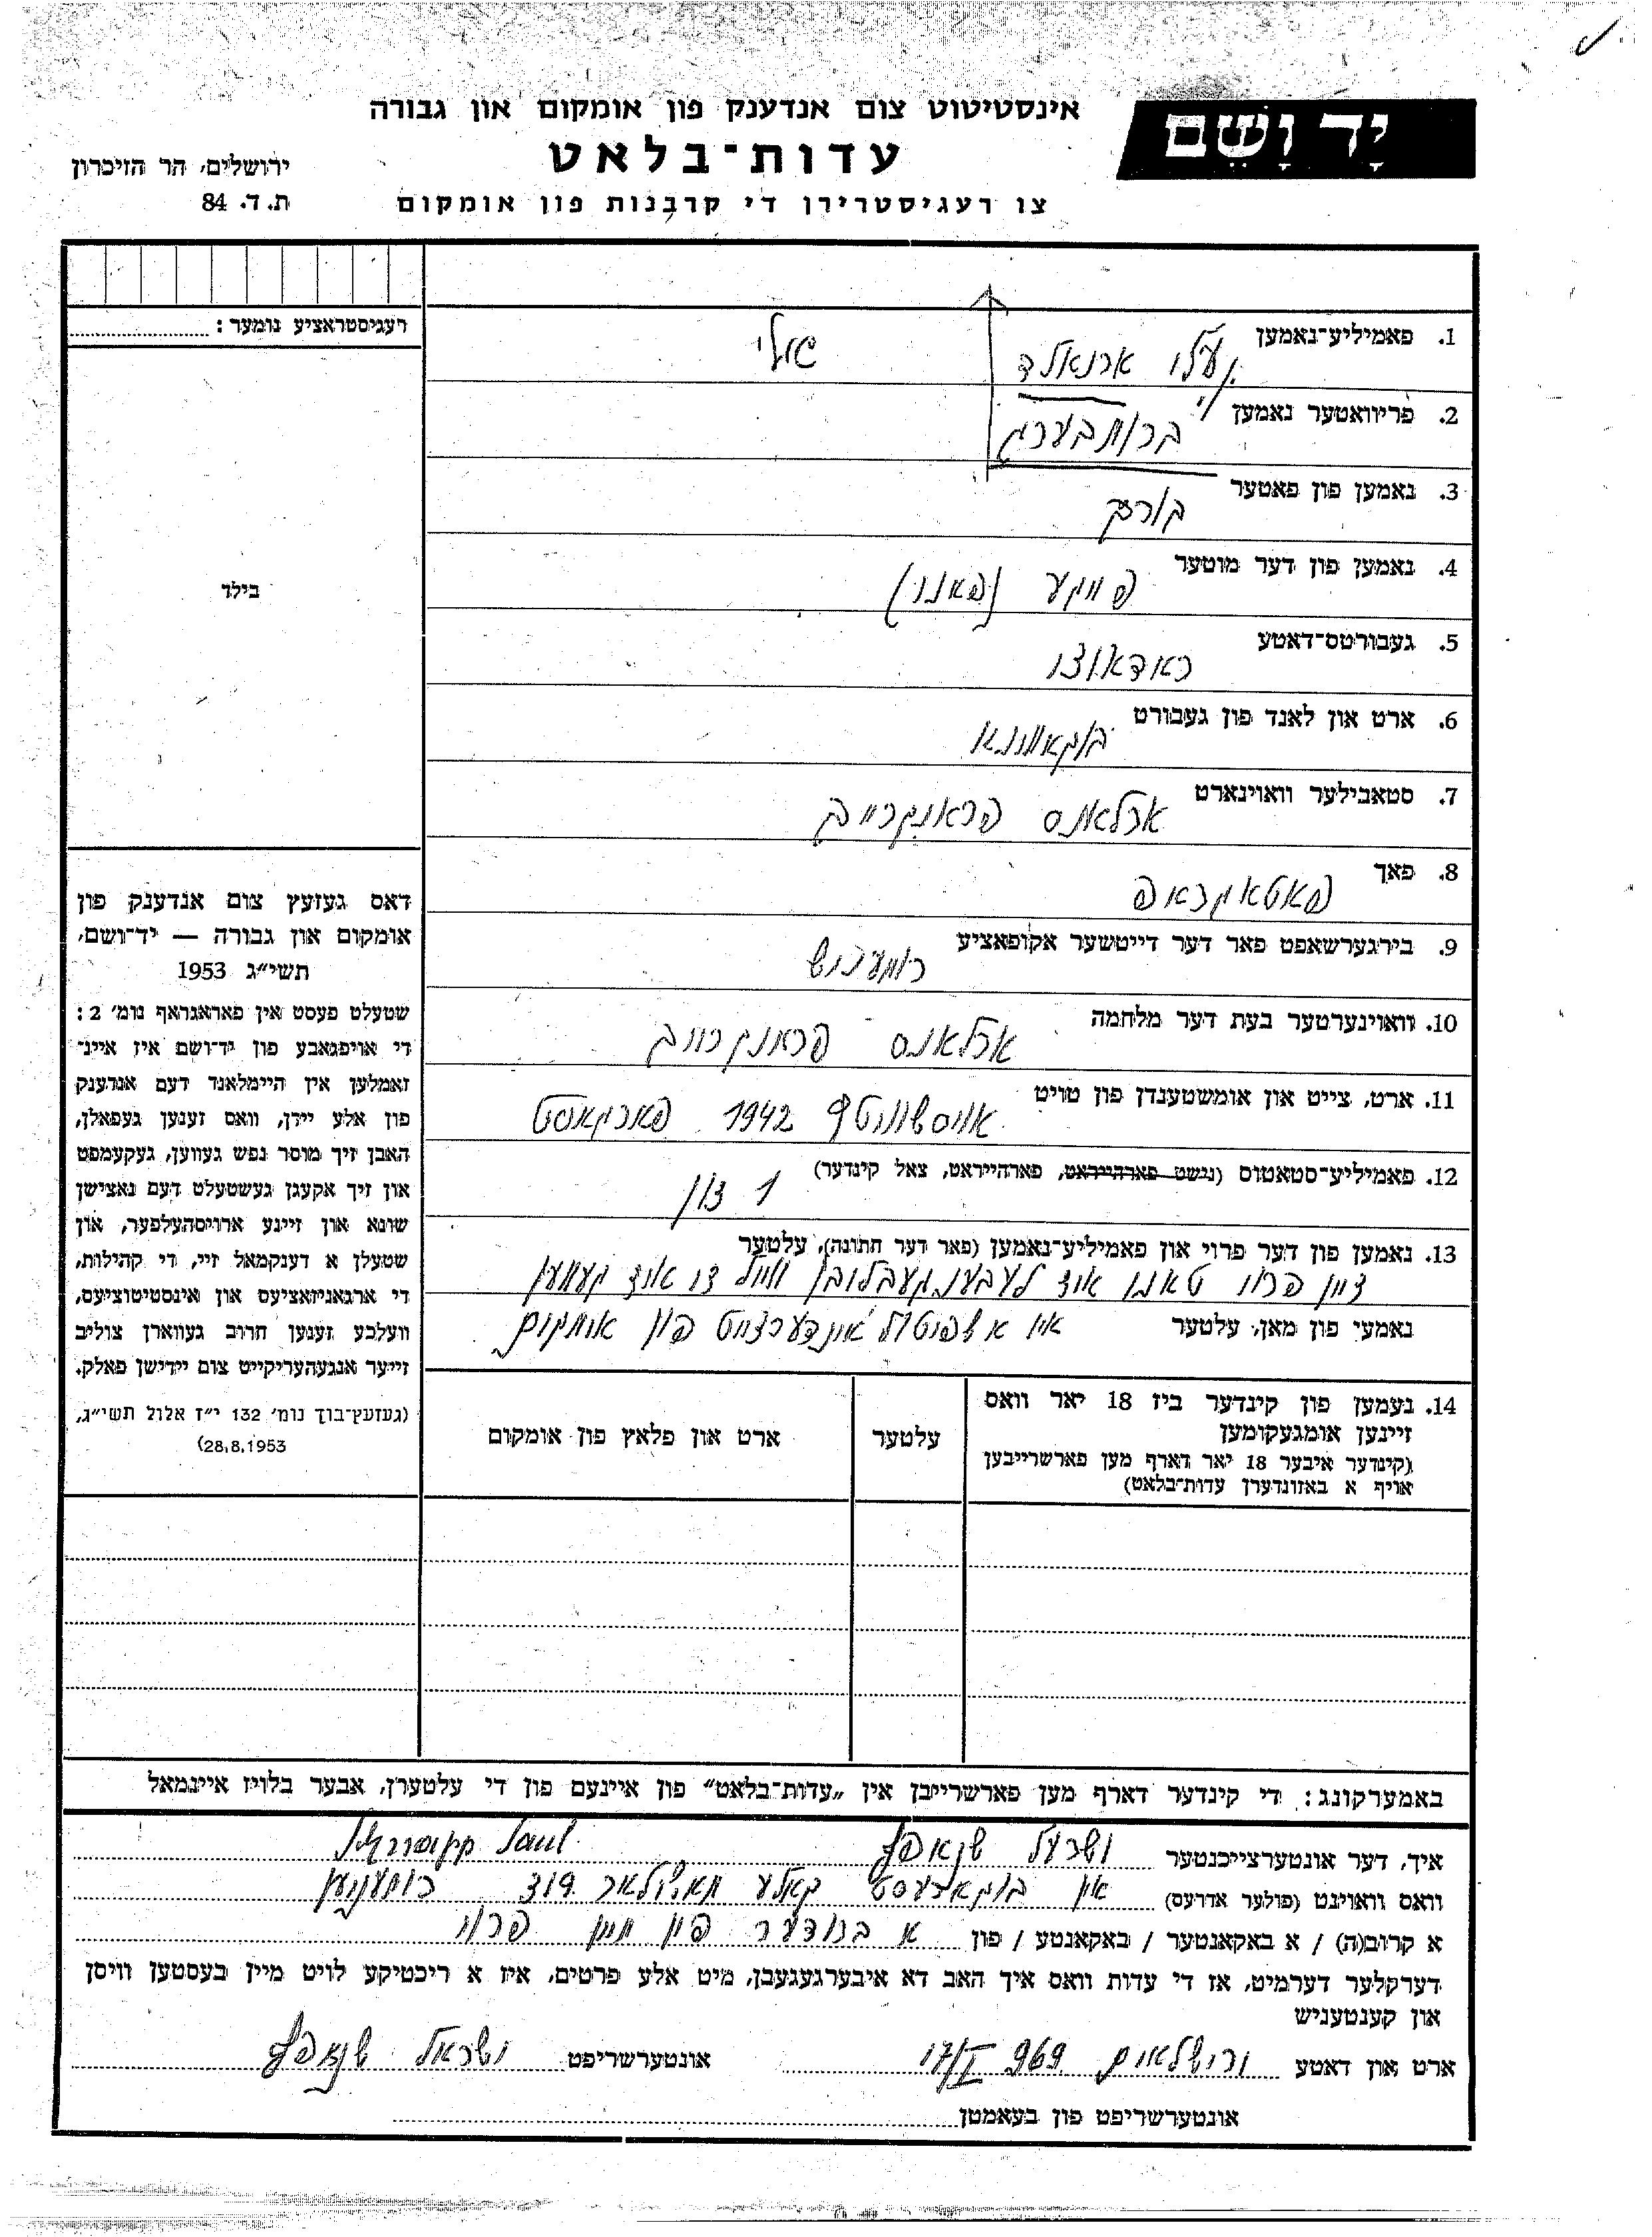 יָד וָשֵׁם
אינסטיטוט צום אנדענק פון אומקום און גבורה
עדות־בלאט
צו רעגיסטרירן די קרבנות פון אומקום
ירושלים, הר הזיכרון
ת. ד. 84
רעגיסטראציע נומער:
בילד
1. פאמיליע־נאמען ארנאלד
2. פריוואטער נאמען
3. נאמען פון פאטער
4. נאמען פון דער מוטער (פאני)
5. געבורטס־דאטע ראדאוצי
6. ארט און לאנד פון געבורט
7. סטאבילער וואוינארט ארלאנס פראנקרייך
8. פאך פאטאגראפ
9. בירגערשאפט פאר דער דייטשער אקופאציע רומעניש
10. וואוינערטער בעת דער מלחמה ארלאנס פראנקרייך
11. ארט, צייט און אומשטענדן פון טויט אוישוויטץ 1942
12. פאמיליע־סטאטוס (נישט פארהייראט, פארהייראט, צאל קינדער) 1 זון
13. נאמען פון דער פרוי און פאמיליע־נאמען (פאר דער חתונה), עלטער
זיין פרוי איז לעבען געבליבן ווייל זי איז געווען
נאמען פון מאן, עלטער אין א שפיטאל אונדערצייט פון אומקום
14. נעמען פון קינדער ביז 18 יאר וואס
זיינען אומגעקומען
(קינדער איבער 18 יאר דארף מען פארשרייבן
אויף א באזונדערן עדות־בלאט)
עלטער
ארט און פלאץ פון אומקום
דאס געזעץ צום אנדענק פון
אומקום און גבורה — יד־ושם,
תשי״ג 1953
שטעלט פעסט אין פאראגראף נומ׳ 2:
די אויפגאבע פון יד־ושם איז איינ־
זאמלען אין היימלאנד דעם אנדענק
פון אלע יידן, וואס זענען געפאלן,
האבן זיך מוסר נפש געווען, געקעמפט
און זיך אקעגן געשטעלט דעם נאצישן
שונא און זיינע ארויסהעלפער, און
שטעלן א דענקמאל זיי, די קהילות,
די ארגאניזאציעס און אינסטיטוציעס,
וועלכע זענען חרוב געווארן צוליב
זייער אנגעהעריקייט צום יידישן פאלק.
(געזעץ־בוך נומ׳ 132 י״ז אלול תשי״ג,
28.8.1953)
באמערקונג: די קינדער דארף מען פארשרייבן אין „עדות־בלאט” פון איינעם פון די עלטערן, אבער בלויז איינמאל
איך, דער אונטערצייכנטער
וואס וואוינט (פולער אדרעס) אין בוקארעסט
א קרוב(ה) / א באקאנטער / באקאנטע / פון א ברודער פון מיין פרוי
דערקלער דערמיט, אז די עדות וואס איך האב דא איבערגעגעבן, מיט אלע פרטים, איז א ריכטיקע לויט מיין בעסטען וויסן
און קענטעניש
ארט און דאטע ירושלאים 17/I 969 אונטערשריפט
אונטערשריפט פון בעאמטן